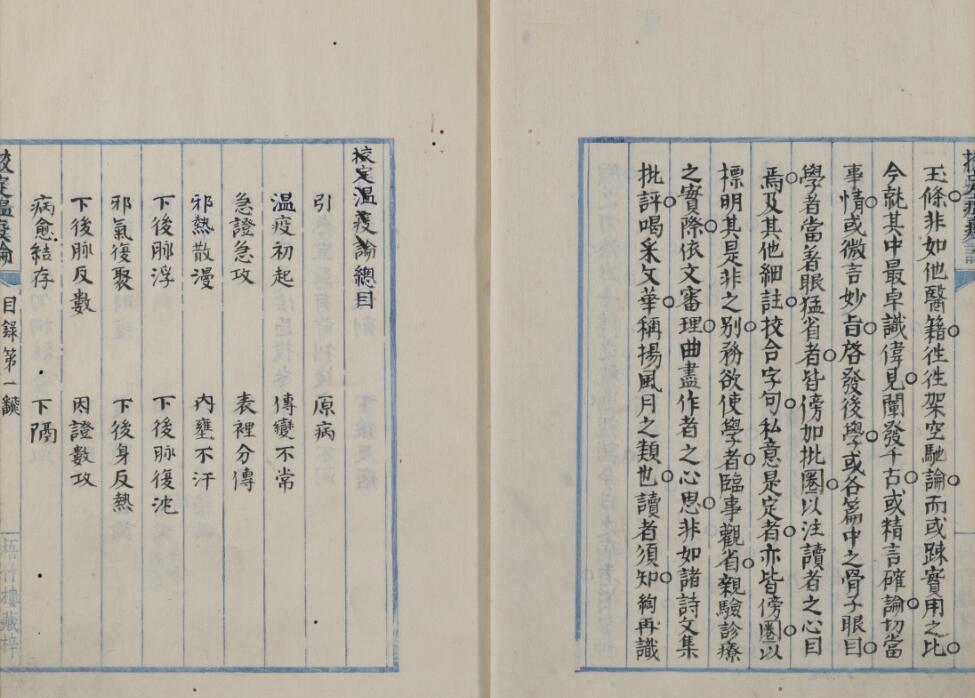 玉條非如他醫籍徃徃架空馳論而或踈實用之比
今就其中最卓識偉見闡發千古或精言確論切當
事情或微言妙旨啓發後學或各篇中之骨子眼目
學者當著眼猛省者皆傍加批圈以注讀者之心目
焉及其他細註挍合字句私意是定者亦皆傍圈以
標明其是非之别務欲使學者臨事觀省親驗診療
之實際依文審理曲盡作者之心思非如諸詩文集
批評喝采文華稱揚風月之類也讀者須知絢再識
挍定温疫論總目
引 原病
温疫初起 傳變不常
急證急攻 表裡分傳
邪熱散漫 内壅不汗
下後脉浮 下後脉復沈
邪氣復聚 下後身反熱
下後脉反數 因證數攻
病愈結存 下隔
挍定温疫論 目録第一
梧竹樓藏梓